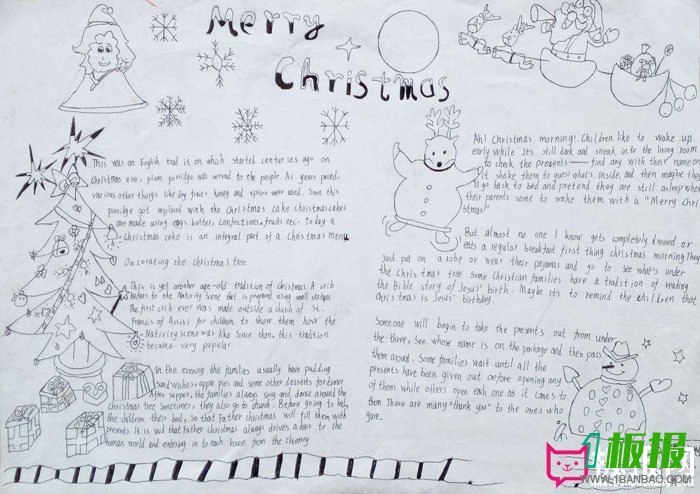 Merry
Christmas
This was an English trad it on which started centuries ago on
Christmas eve. plum porridge was served to the people. As years passed,
various other things like dry fruits honey and spices were used. Soon this
porridge got replaced with the Christmas cake Christmas cakes
are made using eggs butter, confections, fruits etc. Today a
Christmas cake is an integral part of a Christmas menu.
Decorating the Christmas tree
This is yet another age-old tradition of christmas. A crib
refers to the Nativity Scene but is prepared using small statues
The first crib ever was made outside a church of St.
Francis of Assisi for children to show them how the
Nativity scene was like Since then, this tradition
became very popular.
In the evening the families usually have pudding
sand wishes, apple pies and some other desserts for dinner
After supper, the families always sing and dance around the
Christmas tree Sometimes, they also go to church. Before going to bed,
the children their bed, so that Father christmas will fill them with
presents. It is said that Father christmas always drives a deer to the
human world and entering in to each house from the chimney
Ah! Christmas morning! Children like to wake up
early while Its still dark and sneak into the living room
to check the presents—find any with their name on
it shake them to guess what's inside, and then maybe they
'll go back to bed and pretend they are still asleep when
their parents come to wake them with a "Merry Chri
stmas!"
But almost no one I know gets completely dressed or
eats a regular breakfast first thing christmas morning They
Just put on a robe or wear their pajamas and go to see what's under
the Christmas tree some Christian families have a tradition of reading
the Bible story of Jesus' birth. Maybe its to remind the children that
christmas is Jesus' birthday.
Someone will begin to take the presents out from under
the three, See whose name is on the package and then pass
them around. Some families wait until all the
presents have been given out before opening any
of them while others open each one as it comes to
them There are many "thank you" to the ones who
gave.
1板报
WWW.1BANBAO.COM